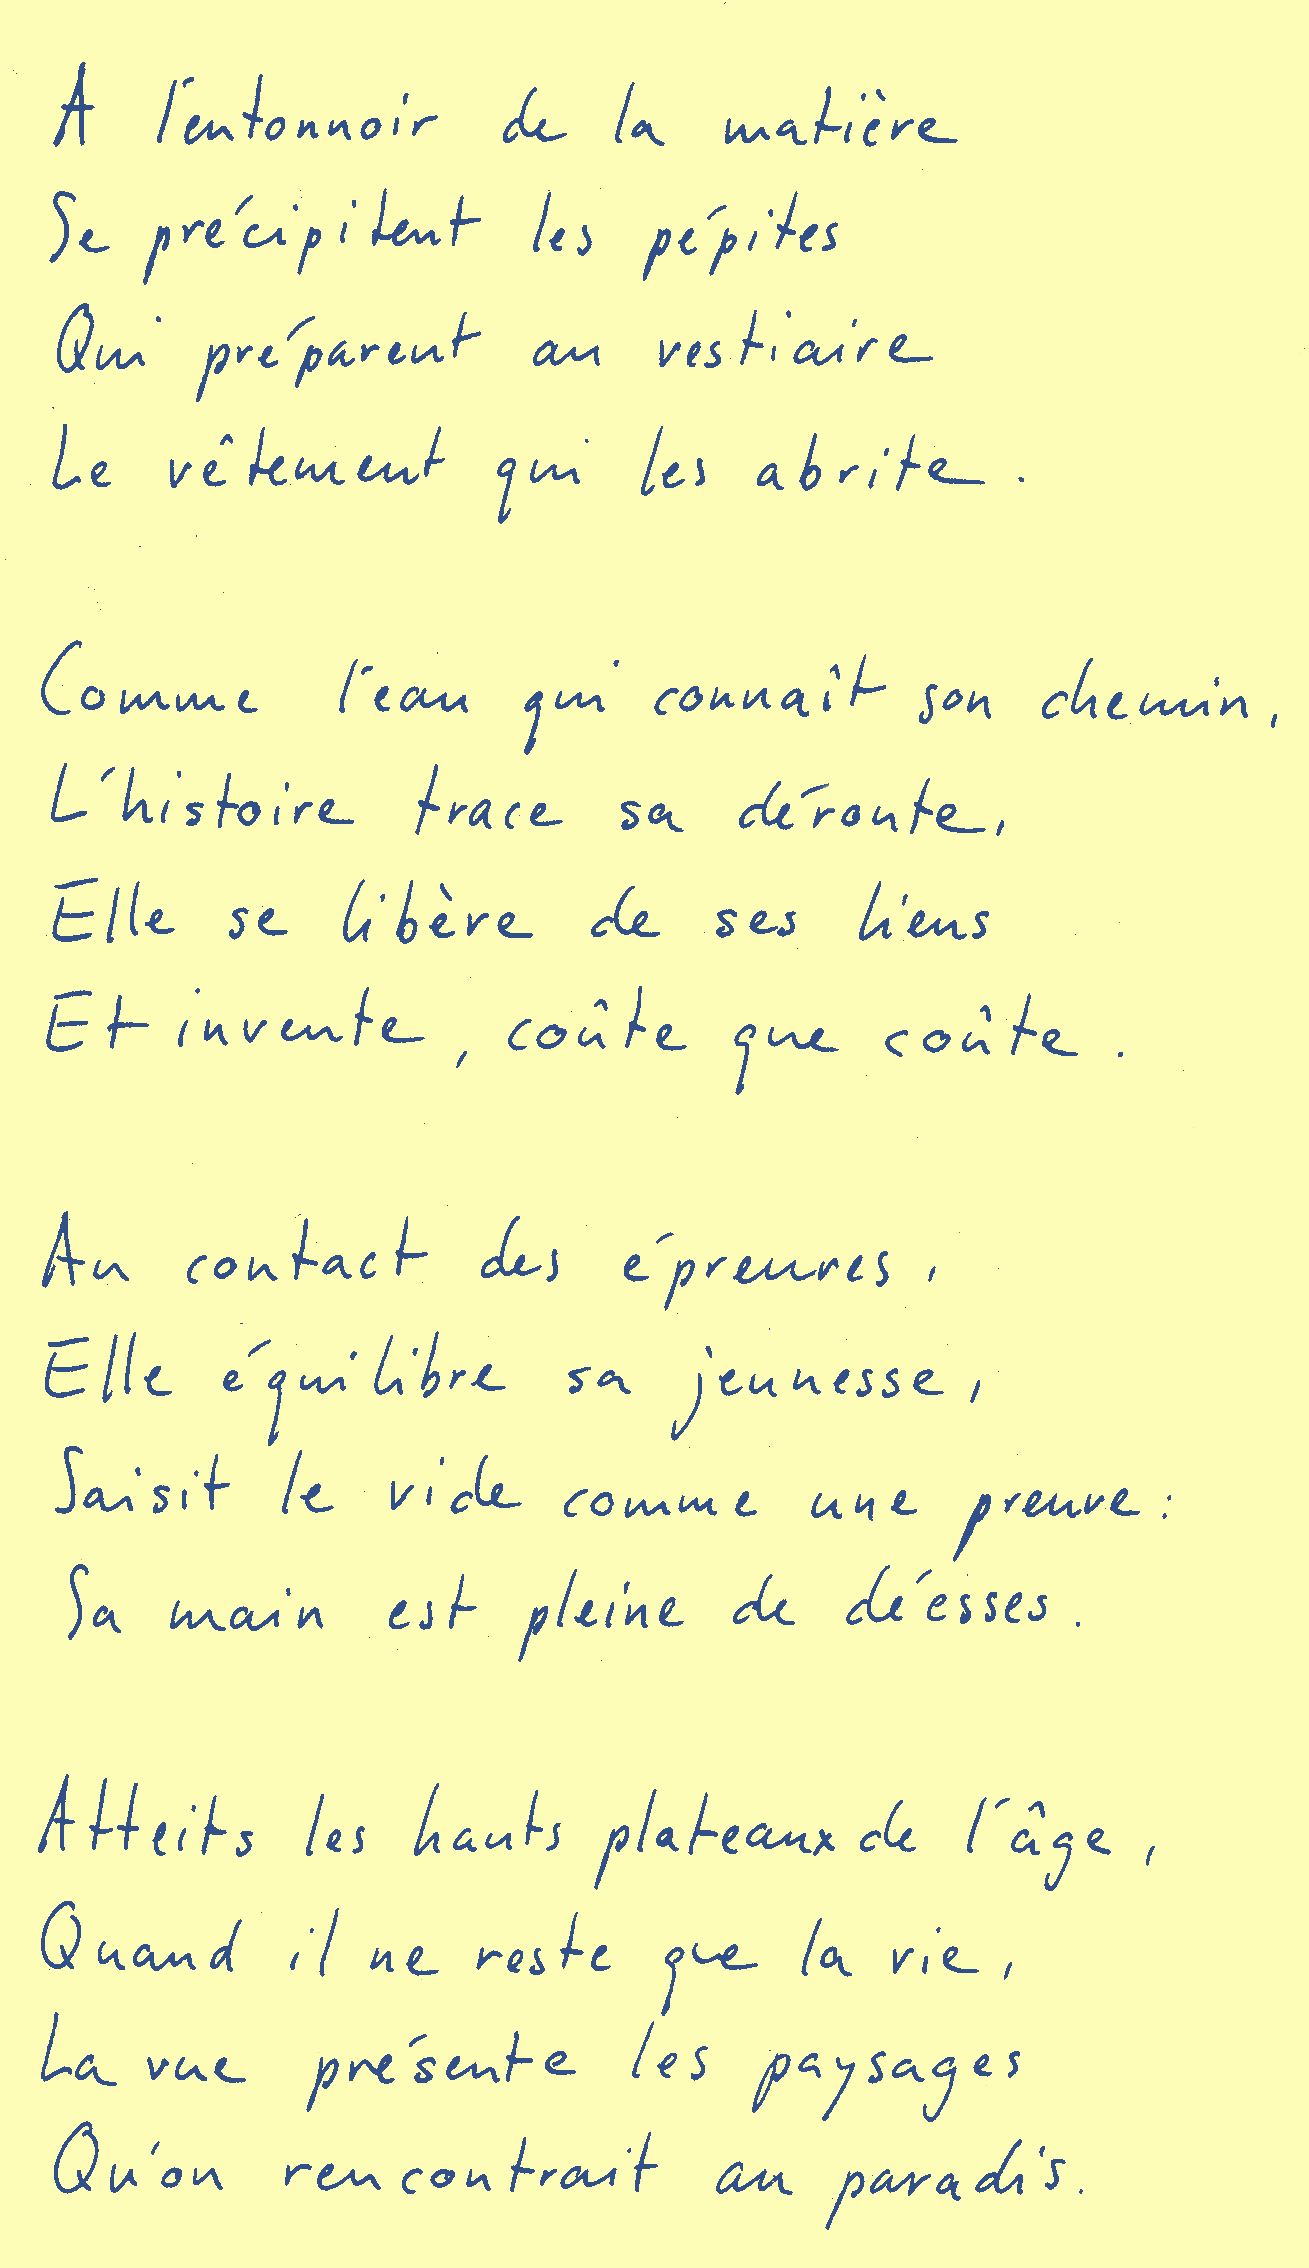 A l'entonnoir de la matière
Se précipitent les pépites
Qui préparent au vestiaire
Le vêtement qui les abrite.
Comme l'eau qui connaît son chemin,
L'histoire trace sa déroute,
Elle se libère de ses liens
Et invente, coûte que coûte.
Au contact des épreuves,
Elle équilibre sa jeunesse,
Saisit le vide comme une preuve:
Sa main est pleine de déesses.
Atteits les hauts plateaux de l'âge,
Quand il ne reste que la vie,
La vue présente les paysages
Qu'on rencontrait au paradis.